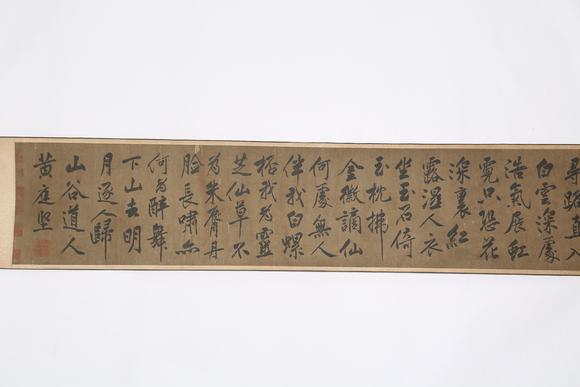 尋路直入
白雲深處
浩氣展虹
霓只恐花
深裏紅
露濕人衣
坐玉石倚
玉枕拂
金徽謫仙
何處無人
伴我白螺
桮我為靈
芝仙草不
為朱脣丹
臉長嘯亦
何為醉舞
下山去明
月逐人歸
山谷道人
黄庭堅